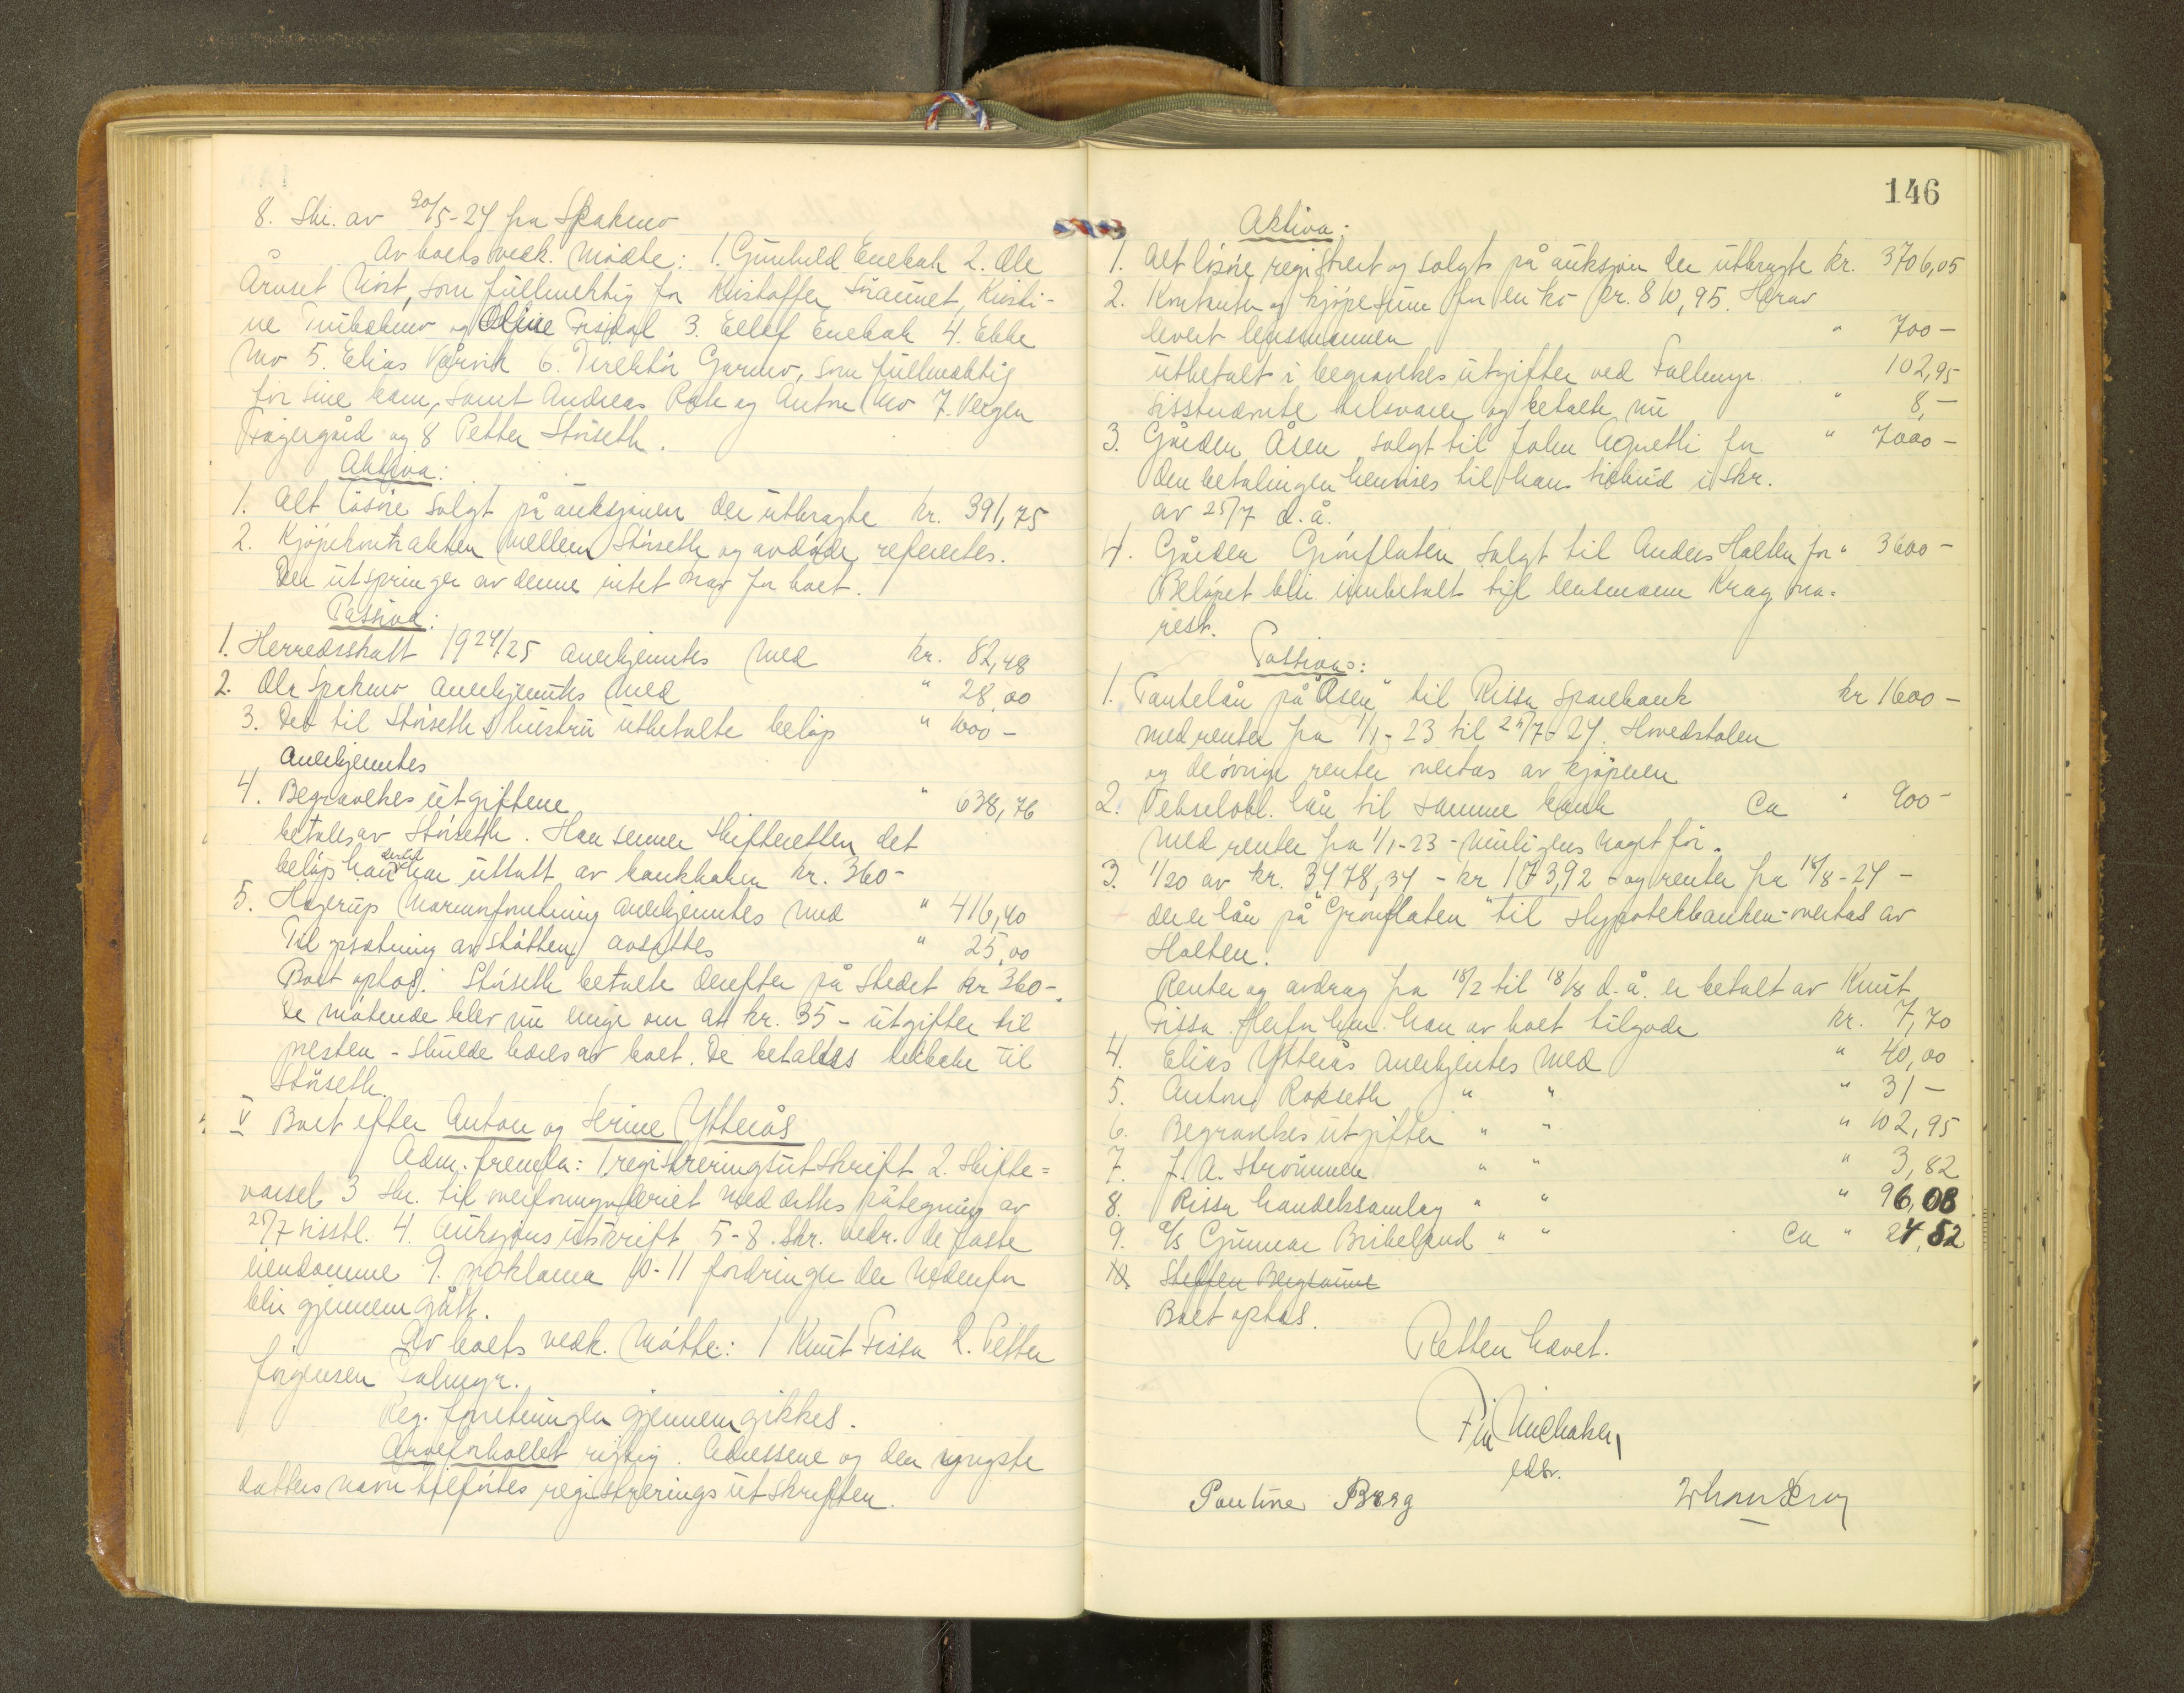 8. Skr. av 20/5-24 fra Spakmo
Av boets vedk. mødte: 1. Gunhild Enebak 2. Ole
Årnset, som fullmektig for Kristoffer, Kristi-
ne og Oline 3. Ellef Enebak 4. Ebbe
Mo 5. Elias Vårvik 6. Direktør Garmo, som fullmektig
for sine barn, samt Andreas og Anton Mo 7.
Fagergård og 8 Petter Störseth.
Aktiva:
1. Alt lösöre solgt på auksjonen der utbragte kr. 391,75
2. Kjöpekontrakten mellem Störseth og avdöde refereertes.
Der utspringer av denne intet krav for boet.
Passiva:
1. Herredsskatt 1924/25 anerkjentes med kr. 82,48
2. Ole Spakmo anerkjentes med " 28,00
3. Det til Störseths hustru utbetalte belöp " 1000 -
anerkjentes
4. Begravelsesutgiftene " 638,76
betales av Störseth. Han senner skifteretten det
belöp han dertil har uttatt av bankboken kr. 360-
5. Hagerups Marmorforretning anerkjentes med " 416,40
Til opsetning av stötten avsattes " 25,00
Boet optas. Störseth betalte derefter på stedet kr 360-.
De mötende blev nu enige om at kr. 35 - utgifter til
presten - skulde bæres av boet. De betaltes tilbake til
Störseth.
V Boet efter Anton og Serine Ytterås
Adm. fremla: 1 registreringsutskrift 2. skifte=
varsel 3 skr. til overformynderiet med dettes påtegning av
25/7 sisstl. 4. Auksjonsutskrift 5-8. skr. vedr. de faste
eiendomme 9. proklama 10-11 fordringer der nedenfor
blir gjennemgått.
Av boets vedk. mötte: 1 Knut Fissa 2. Petter
Jörgensen
Reg. forretningen gjennemgikkes.
Arveforholdet riktig. Adressene og den yngste
datters navn tilförtes registreringsutskriften.
146
Aktiva:
1. Alt lösöre registrert og solgt på auksjon der utbragte kr. 3706,05
2. Kontanter og kjöpesum for en ko kr. 810,95. Herav
levert lensmannen " 700 -
utbetalt i begravelses utgifter ved 102,95
Sisstnevnte tilsvarer og betalte nu " 8,-
3. Gården Åsen solgt til John Agnetli for " 7000 -
Om betalingen henvises til hans tilbud i skr.
av 25/7 d.å.
4. Gården Grönflaten solgt til Anders Holten for " 3600 -
Belöpet blir innbetalt til lensmann Krag
rest.
Passiva:
1. Pantelån på "Åsen" til Rissa Sparebank kr 1600 -
med renter fra 1/1-23 til 25/7-24. Hovedstolen
og de övrige renter overtas av kjöperen
2. Vekselobl. lån til samme bank Ca " 900 -
med renter fra 1/1-23 - muligens noget för.
3. 1/20 av kr. 3478,34 - kr 173,92 - og renter fra 18/8-24 -
der er lån på "Grönflaten" til Hypotekbanken - overtas av
Holten.
Renter og avdrag fra 18/2 til 18/8 d.å. er betalt av Knut
Fissa. Herfor har han av boet tilgode kr. 7,70
4. Elias Ytterås anerkjentes med " 40,00
5. Anton Rokseth " " " 31 -
6. Begravelses utgifter " " " 102,95
7. J. A. Strömmen " " " 3,82
8. Rissa Handelssamlag " " " 96,08
9. A/S Gunnar Birkeland " " Ca " 24,52
10. Steffen Bergsaune
Boet optas.
Retten hævet.
edsv.
Pauline Berg